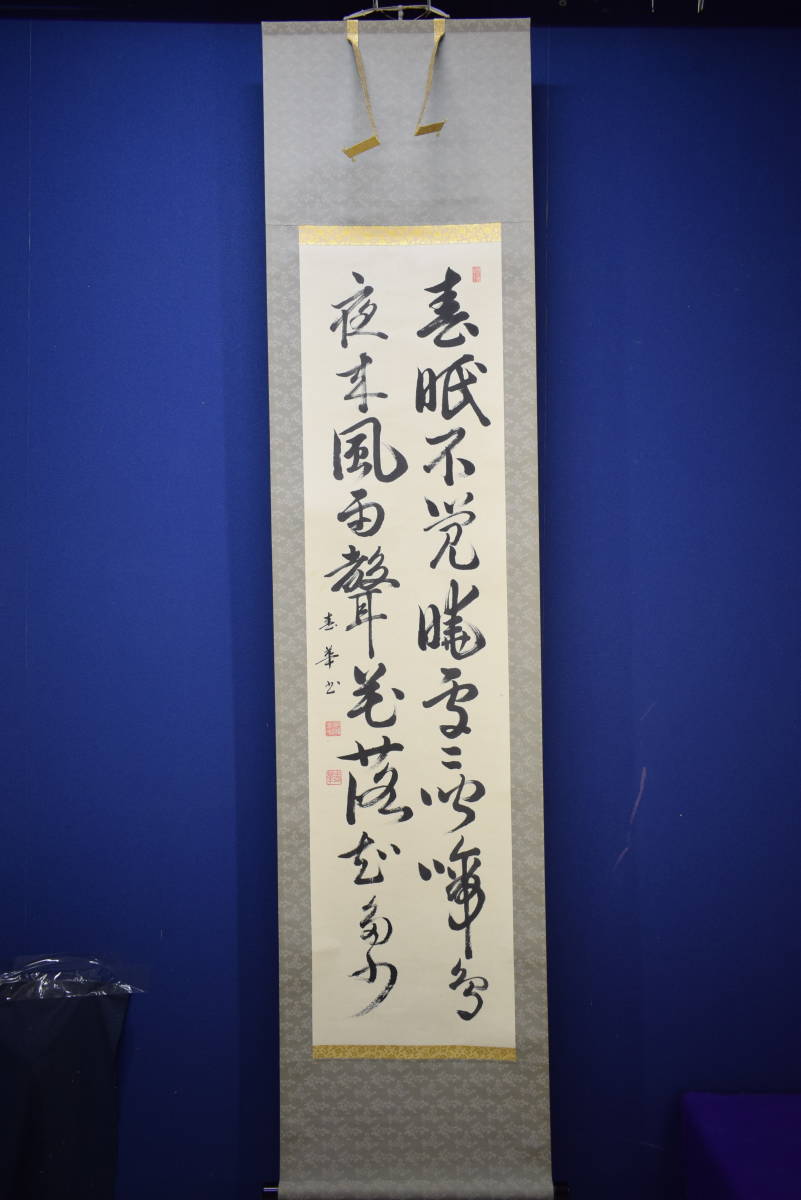 春眠不覚暁處〻聞啼鳥
夜来風雨聲花落知多少
春華書